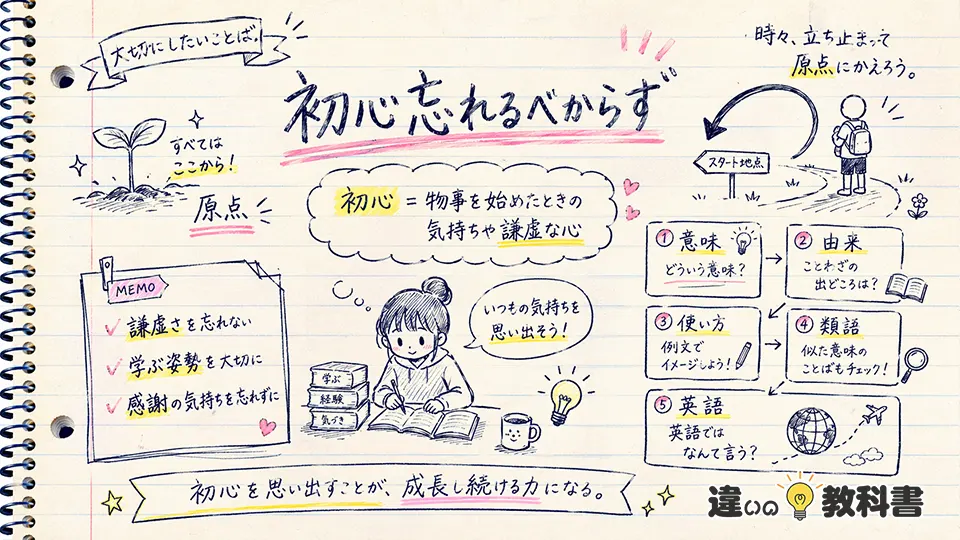 大切にしたいことば。
初心忘れるべからず
時々、立ち止まって
原点にかえろう。
スタート地点
すべては
ここから!
原点
初心 = 物事を始めたときの
気持ちや謙虚な心
MEMO
謙虚さを忘れない
学ぶ姿勢を大切に
感謝の気持ちを忘れずに
いつもの気持ちを
思い出そう!
学ぶ
経験
気づき
① 意味
どういう意味?
② 由来
ことわざの
出どころは?
③ 使い方
例文で
イメージしよう!
④ 類語
似た意味の
ことばもチェック!
⑤ 英語
英語では
なんて言う?
初心を思い出すことが、成長し続ける力になる。
違いの教科書